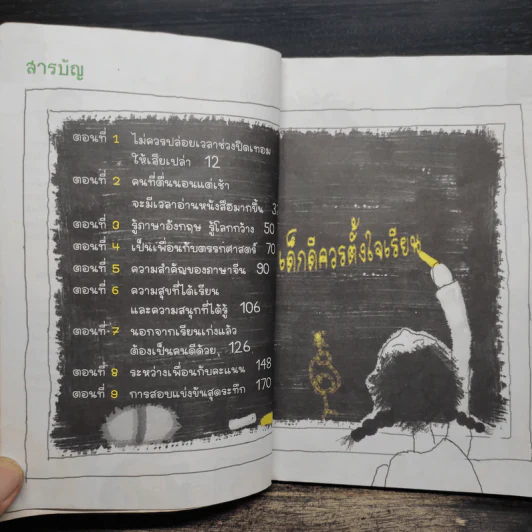 สารบัญ
ตอนที่ 1 ไม่ควรปล่อยเวลาช่วงปิดเทอม
ให้เสียเปล่า 12
ตอนที่ 2 คนที่ตื่นนอนแต่เช้า
จะมีเวลาอ่านหนังสือมากขึ้น
ตอนที่ 3 รู้ภาษาอังกฤษ รู้โลกกว้าง 50
ตอนที่ 4 เป็นเพื่อนกับตรรกศาสตร์ 70
ตอนที่ 5 ความสำคัญของภาษาจีน 90
ตอนที่ 6 ความสุขที่ได้เรียน
และความสนุกที่ได้รู้ 106
ตอนที่ 7 นอกจากเรียนเก่งแล้ว
ต้องเป็นคนดีด้วย 126
ตอนที่ 8 ระหว่างเพื่อนกับคะแนน 148
ตอนที่ 9 การสอบแข่งขันสุดระทึก 170
เด็กดีควรตั้งใจเรียน